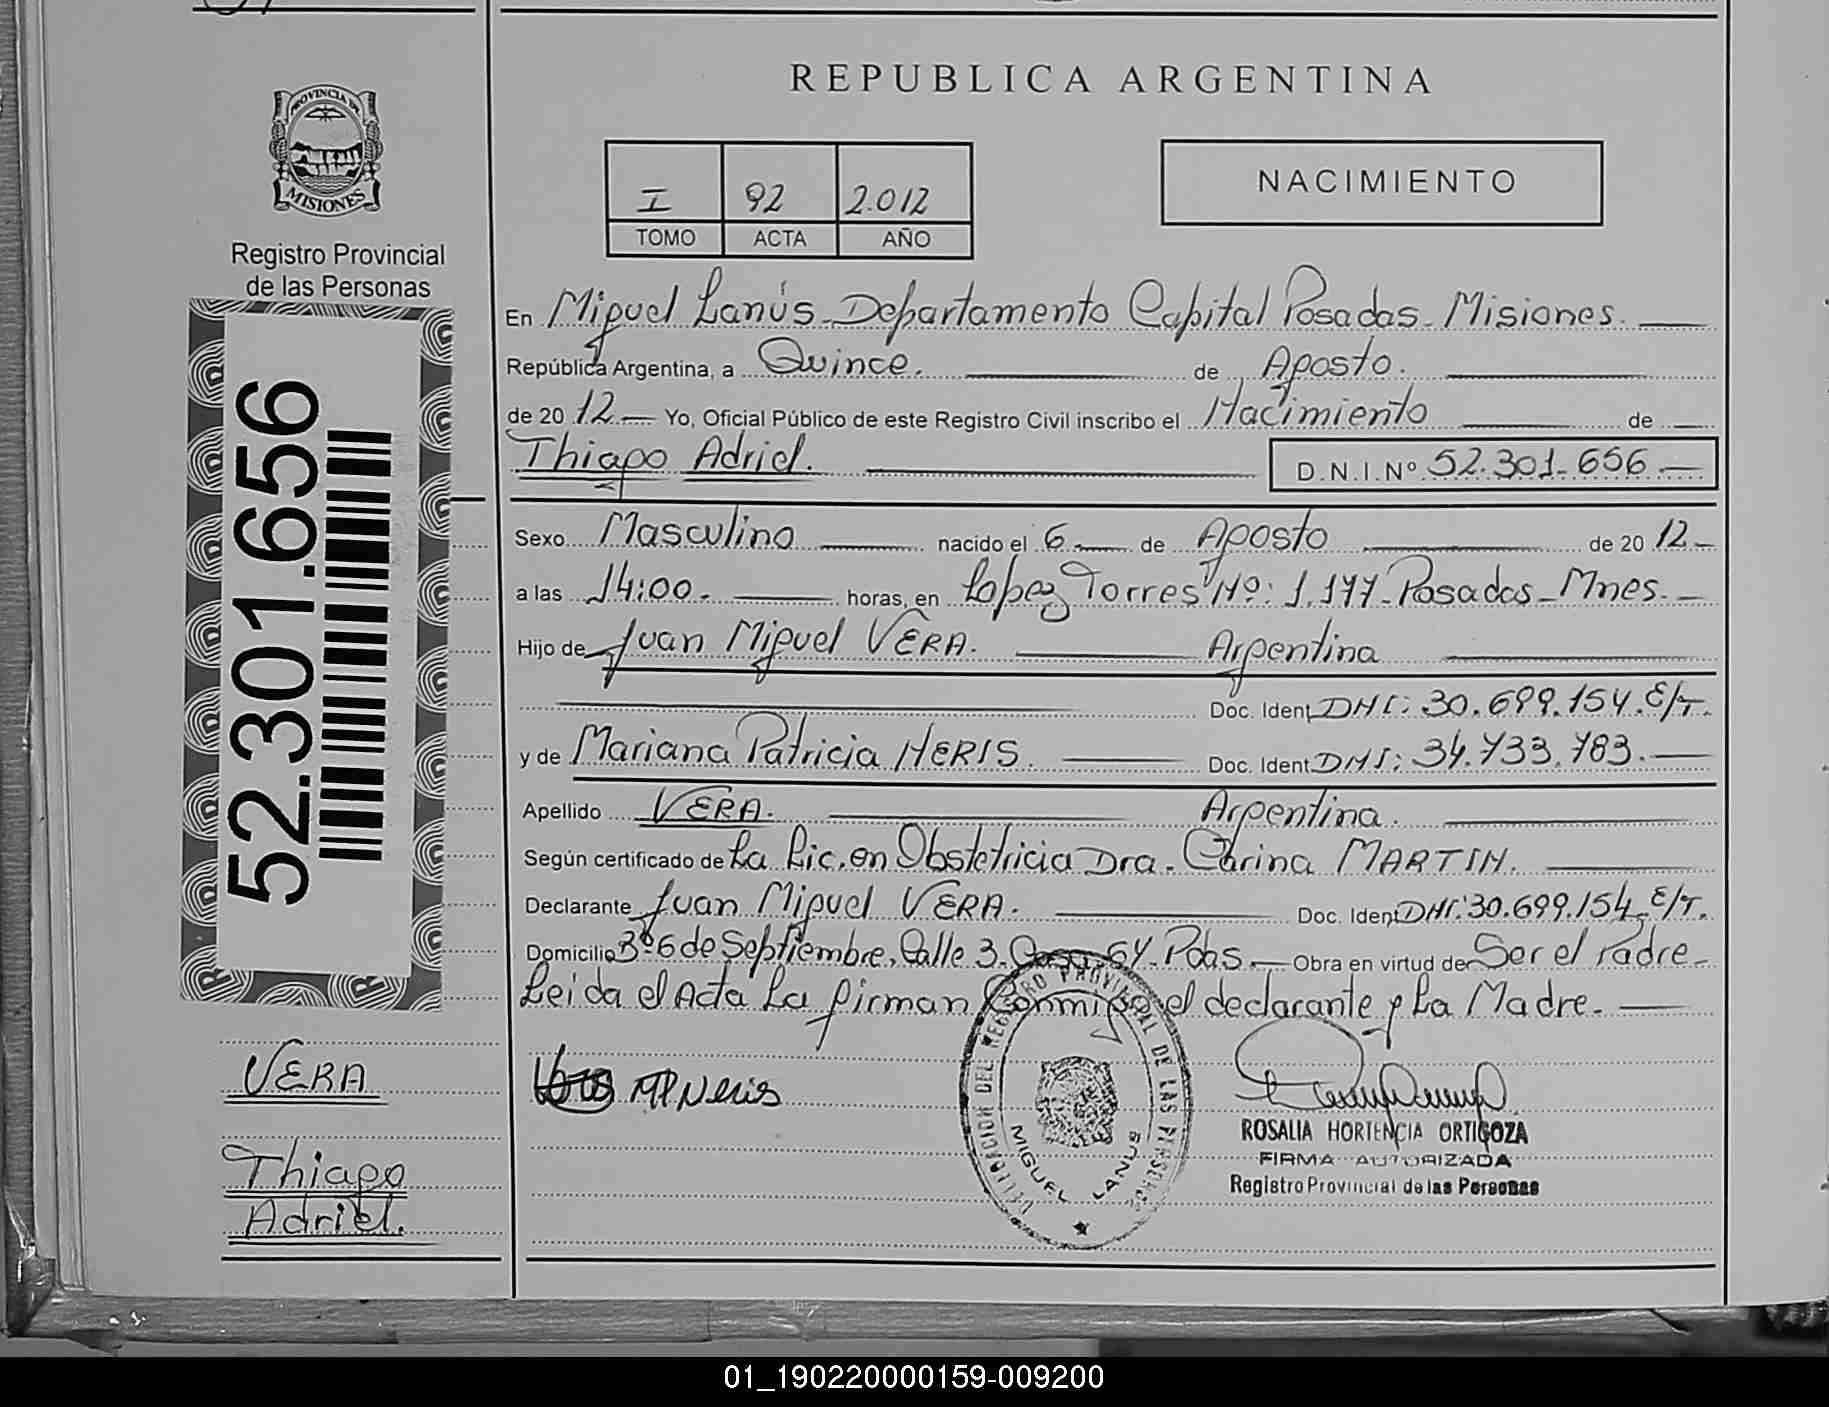 REPUBLICA ARGENTINA
PROVINCIA DE
MISIONES
Registro Provincial
de las Personas
I 92 2.012
TOMO ACTA AÑO
NACIMIENTO
52.301.656
En Miguel Lanús - Departamento Capital Posadas - Misiones.
República Argentina, a Quince. de Agosto.
de 20 12 Yo, Oficial Público de este Registro Civil inscribo el Nacimiento de
Thiago Adriel. D.N.I.Nº 52.301.656
Sexo Masculino nacido el 6 de Agosto de 20 12
a las 14:00. horas, en Lopez Torres Nº: 1.177 - Posadas - Mnes.
Hijo de Juan Miguel VERA. Argentina
Doc. Ident DNI: 30.699.154. E/T.
y de Mariana Patricia NERIS. Doc. Ident DNI: 34.733.783.
Apellido VERA. Argentina.
Según certificado de La Lic. en Obstetricia Dra. Carina MARTIN.
Declarante Juan Miguel VERA. Doc. Ident DNI: 30.699.154. E/T.
Domicilio Bº 6 de Septiembre, Calle 3. Casa 64. Pdas. Obra en virtud de Ser el Padre
Leida el Acta La firman Conmigo el declarante y La Madre.
VERA
Thiago
Adriel.
MP Neris
DELEGACION DEL REGISTRO PROVINCIAL DE LAS PERSONAS
MIGUEL LANUS
ROSALIA HORTENCIA ORTIGOZA
FIRMA AUTORIZADA
Registro Provincial de las Personas
01_190220000159-009200